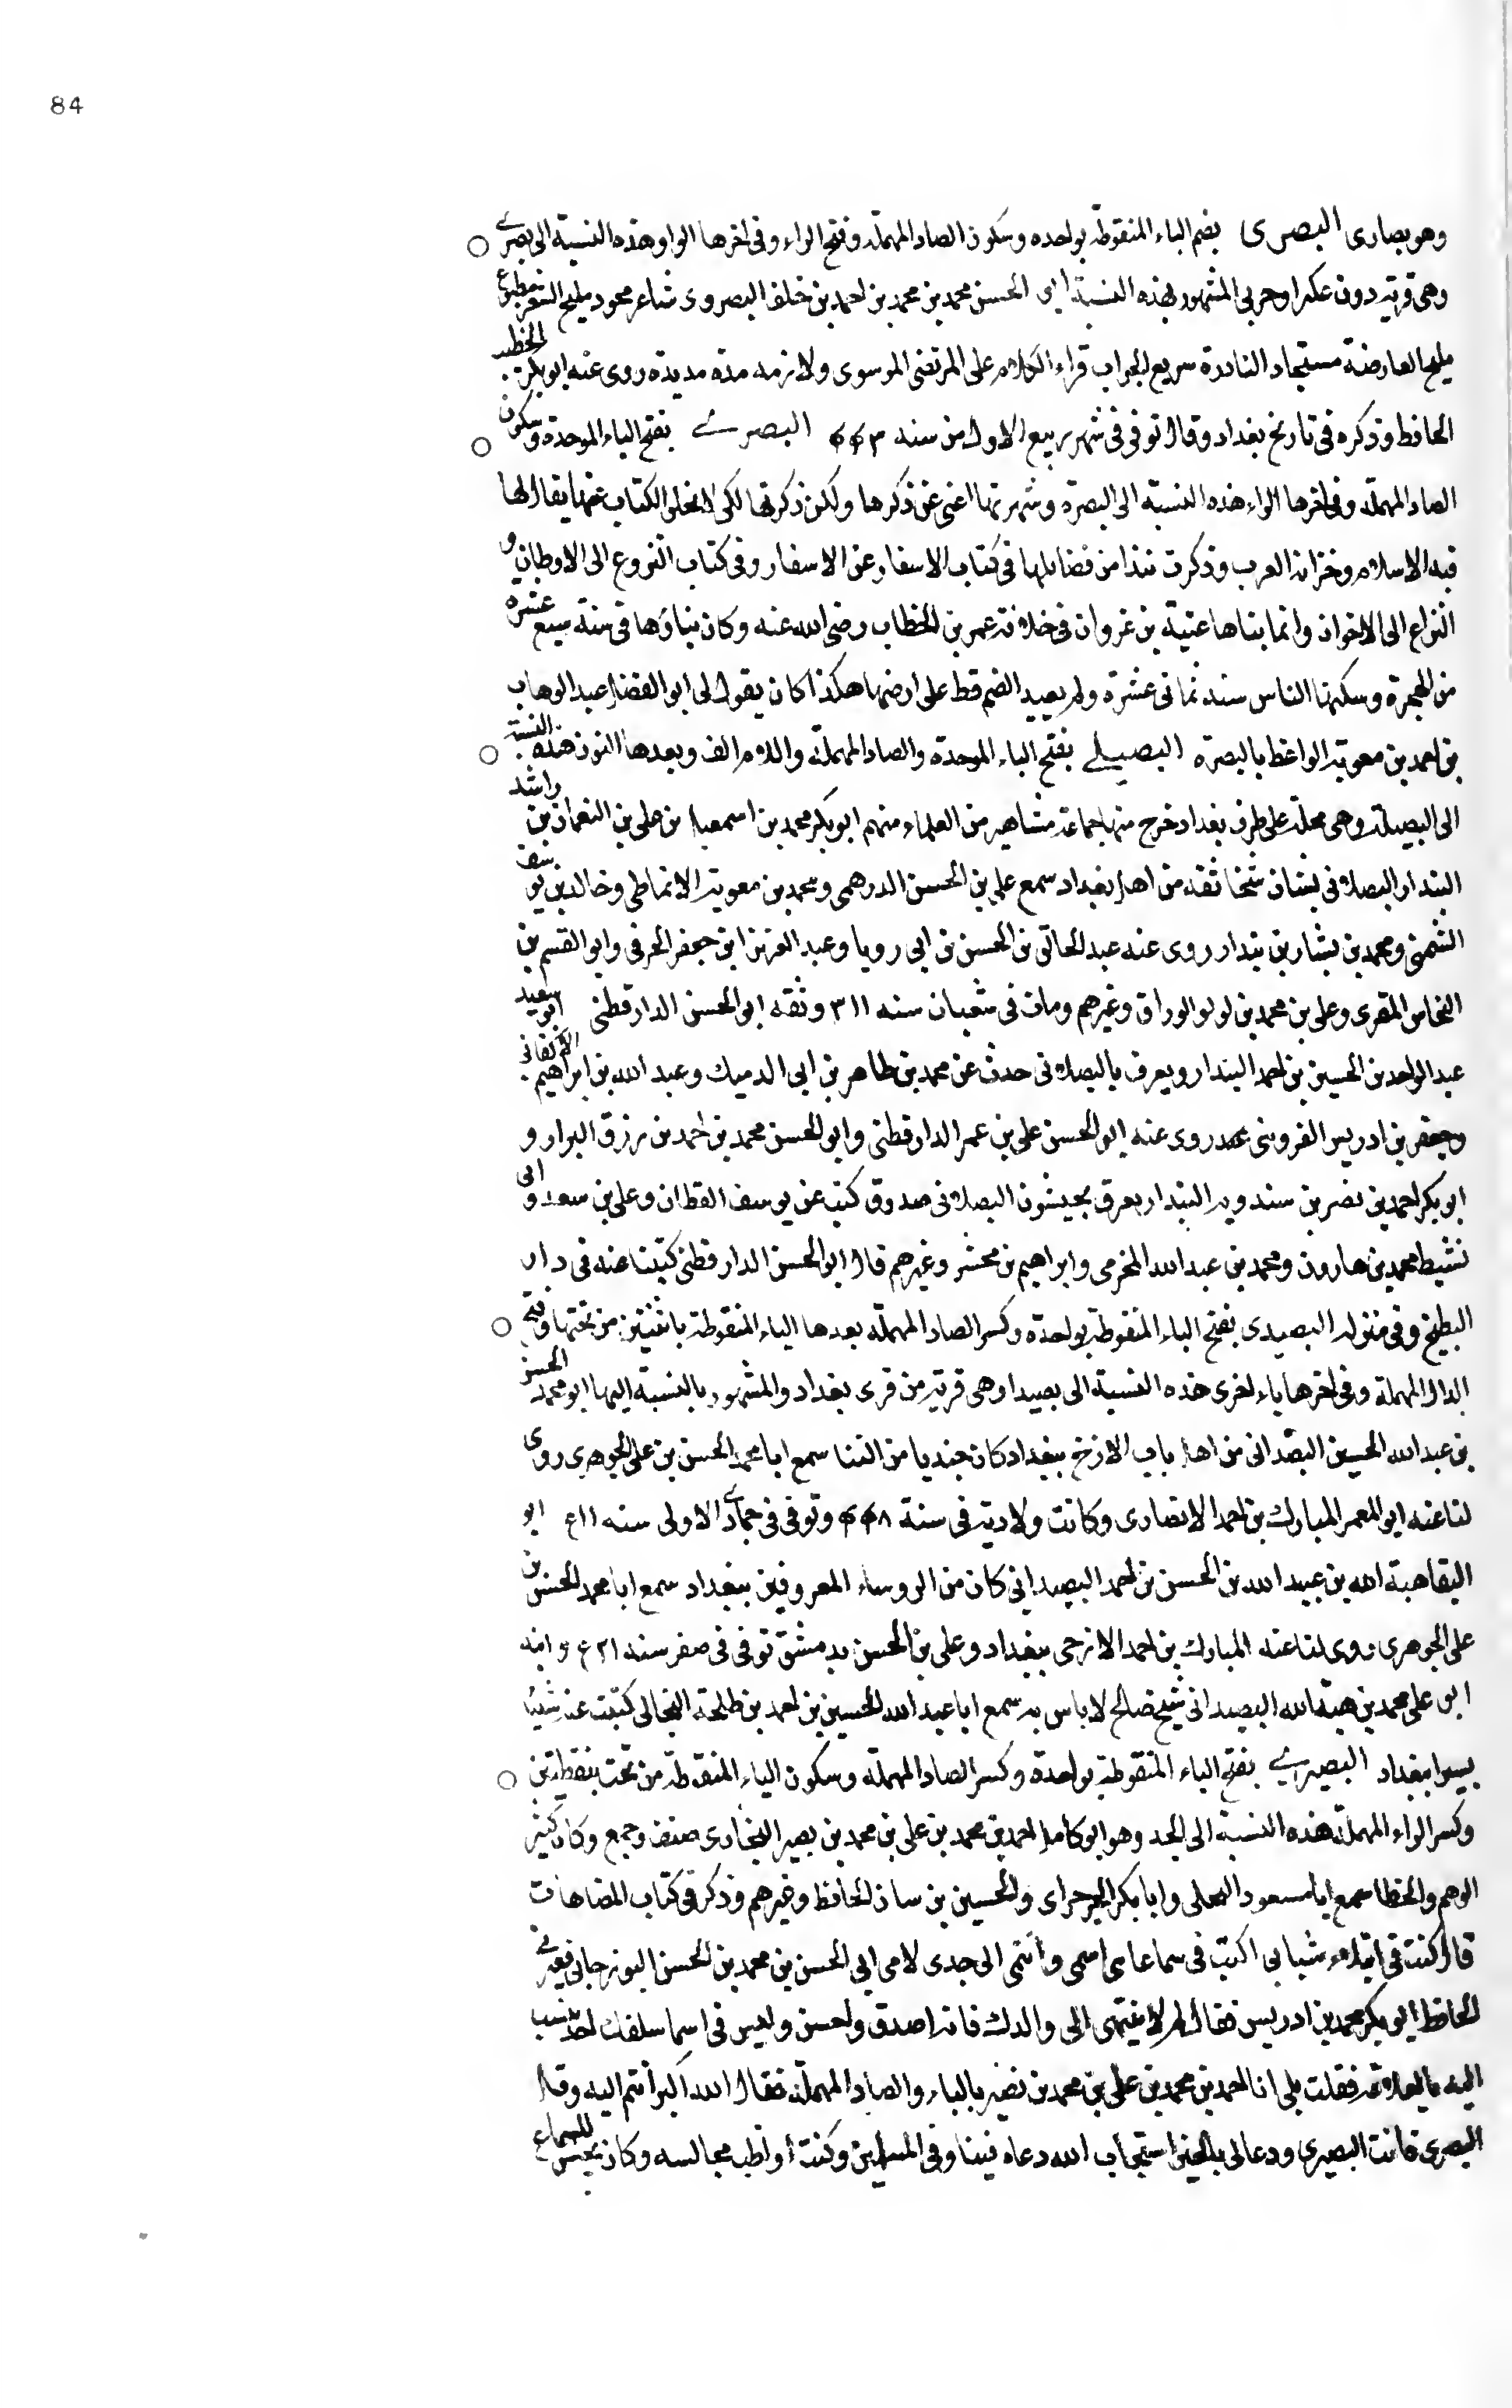 84
وهو بصارى البصرى بضم الباء المنقوطة بواحده وسكون الصاد المهملة وفتح الراء وفى اخرها الواو هذه النسبة الى بصرى
وهى قرية دون عكبرا وحربى المشهور بهذه النسبة ابى الحسن محمد بن محمد بن احمد بن خلف البصروى شاعر مجود مليح الشعر مطبوع
مليح العارضة مستجاد النادرة سريع الجواب قراء الكلام على المرتضى الموسوى ولازمه مدة مديدة روى عنه ابو بكر الخطيب
الحافظ وذكره فى تاريخ بغداد وقال توفى فى شهر ربيع الاول من سنه ۴۴۳ البصرى بفتح الباء الموحدة وسكون
الصاد المهملة وفى اخرها الراء هذه النسبة الى البصرة وشهرتها اغنى عن ذكرها ولكن ذكرتها لكى لا يخلى الكتاب عنها يقال لها
قبة الاسلام وخزانة العرب وذكرت نبذا من فضايلها فى كتاب الاسفار عن الاسفار وفى كتاب النزوع الى الاوطان و
النزاع الى الاخوان وانما بناها عتبة بن غزوان فى خلافة عمر بن الخطاب رضى الله عنه وكان بناؤها فى سنة سبع عشره
من الهجرة وسكنها الناس سنه ثمانى عشرة ولم يعبد الصنم قط على ارضها هكذا كان يقول لى ابو الفضل عبد الوهاب
بن احمد بن معوية الواعظ بالبصرة البصيلى بفتح الباء الموحدة والصاد المهملة واللام الف وبعدها النون هذه النسبة
الى البصيلة وهى محلة على طرف بغداد خرج منها جماعة مشاهير من العلماء منهم ابو بكر محمد بن اسمعيل بن على بن النعمان بن راشد
البندار البصلانى شيخا ثقة من اهل بغداد سمع على بن الحسن الدرهمى ومحمد بن معوية الانماطى وخالد بن يوسف
السمتى ومحمد بن بشار بن بندار روى عنه عبد الخالق بن الحسن بن ابى رويا وعبد العزيز ابن جعفر الخرقى وابو القسم بن
النخاس المقرى وعلى بن محمد بن لولو الوراق وغيرهم ومات فى شعبان سنه ۳۱۱ وثقه ابو الحسن الدارقطنى ابو سعيد
عبد الواحد بن الحسين بن احمد البندار ويعرف بالبصلانى حدث عن محمد بن طاهر بن ابى الدميك وعبد الله بن ابراهيم
وجعفر بن ادريس القزوينى روى عنه ابو الحسن على بن عمر الدارقطنى وابو الحسن محمد بن احمد بن رزق البزار و
ابو بكر احمد بن نصر بن سندويه البندار يعرف بحبشون البصلانى صدوق كتب عن يوسف القطان وعلى بن وابى
نشيط محمد بن هارون ومحمد بن عبد الله المخرمى وابراهيم بن محشر وغيرهم قال ابو الحسن الدارقطنى كتبنا عنه فى دار
البطيخ وفى منزله البصيدى بفتح الباء المنقوطة بواحدة وكسر الصاد المهملة بعدها الياء المنقوطة باثنتين من تحتها وفتح
الدال المهملة وفى اخرها ياء اخرى هذه النسبة الى بصيدا وهى قرية من قرى بغداد والمشهور بالنسبة اليها ابو محمد الحسن
بن عبد الله الحسين البصدانى من اهل باب الازج ببغداد كان جنديا من التنا سمع ابا محمد الحسن بن على الجوهرى روى
لنا عنه ابو المعمر المبارك بن احمد الانصارى وكانت ولادته فى سنة ۴۴۸ وتوفى فى جمادى الاولى سنه ۱۱ع ابو
البقا هبة الله بن عبيد الله بن الحسن بن احمد البصيدانى كان من الروساء المعروفين ببغداد سمع ابا محمد الحسن بن
على الجوهرى روى لنا عنه المبارك بن احمد الازجى ببغداد وعلى بن الحسن بدمشق توفى فى صفر سنه ۲۱ع وابنه
ابو على محمد بن هبة الله البصيدانى شيخ صالح لاباس به سمع ابا عبد الله الحسين بن احمد بن طلحة النعالى كتبت عنه شيئا
يسيرا ببغداد البصيرى بفتح الباء المنقوطة بواحدة وكسر الصاد المهملة وسكون الياء المنقوطة من تحت بنقطتين
وكسر الراء المهملة هذه النسبة الى الجد وهو ابو كامل احمد بن محمد بن على بن محمد بن بصير البخارى صنف وجمع وكان كثير
الوهم والخطا سمع ابا مسعود البجلى وابا بكر والحسين بن الحافظ وغيرهم وذكر فى كتاب المضاهات
قال كنت فى ابتداء شبابى اكتب فى سماعاتى اسمى وانتمى الى جدى لامى ابى الحسن بن محمد بن الحسن البوزجانى
الحافظ ابو بكر محمد بن ادريس فقال لم لا تنتمى الى والدك فانه اصدق واحسن وليس فى اسما سلفك احد ينسب
اليه فقلت بلى انا احمد بن محمد بن على بن محمد بن نصير بالباء والصاد المهملة فقال الله اكبر انتم اليه وقل
البصيرى فانت البصيرى ودعا لى بالخير استجاب الله دعاه فينا وفى المسلمين وكنت اواظب مجالسه وكان للسماع